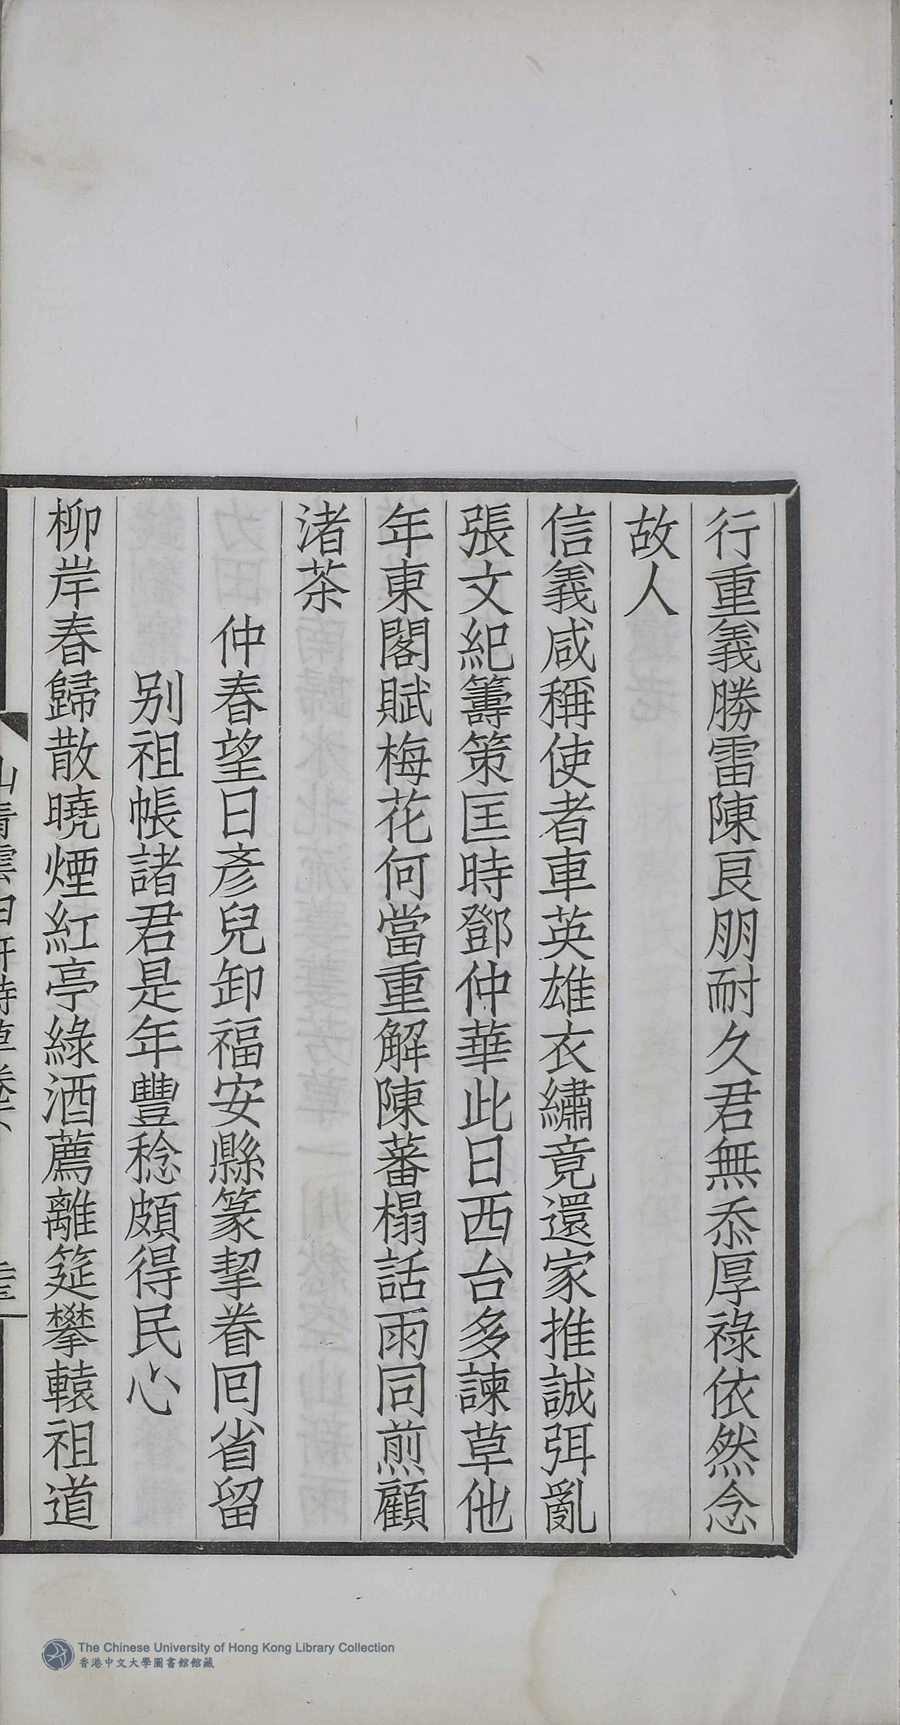 行重義勝雷陳良朋耐久君無忝厚祿依然念
故人
信義咸稱使者車英雄衣繡竟還家推誠弭亂
張文紀籌策匡時鄧仲華此日西台多諫草他
年東閣賦梅花何當重解陳蕃榻話雨同煎顧
渚茶
仲春望日彥兒卸福安縣篆挈眷回省留
别祖帳諸君是年豐稔頗得民心
柳岸春歸散曉煙紅亭綠酒薦離筵攀轅祖道
The Chinese University of Hong Kong Library Collection
香港中文大學圖書館館藏